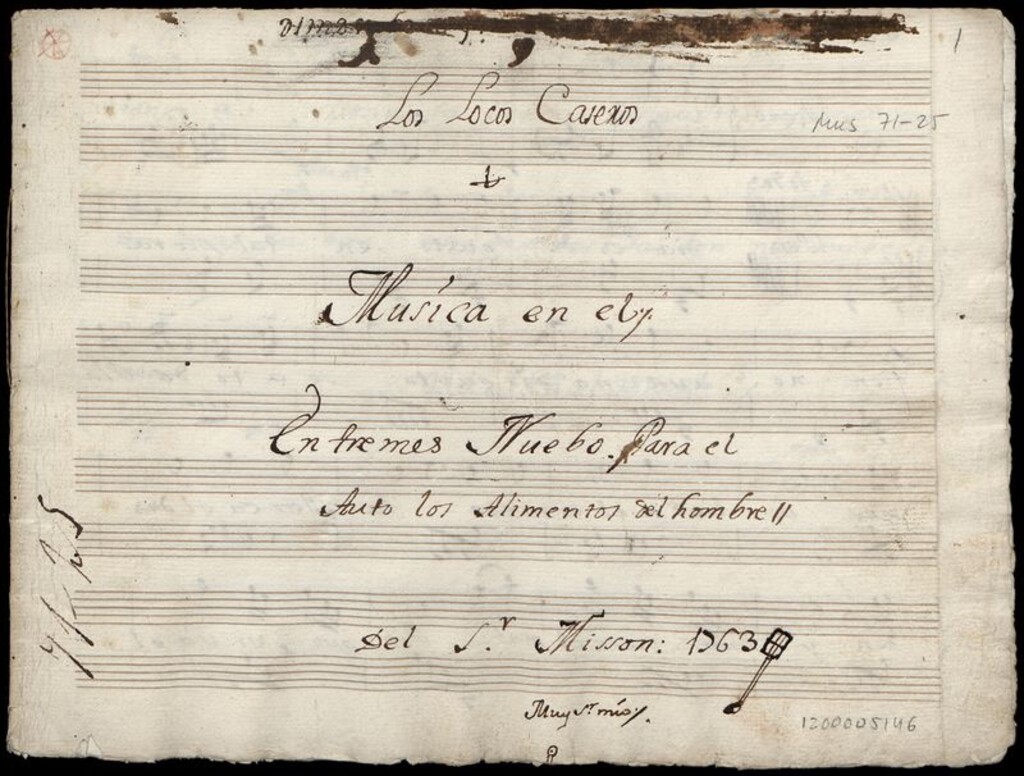 1
Los Locos Caseros
Mus 71-25
Musica en el
Entremes Nuebo. Para el
Auto los Alimentos del hombre
71-25
Del S.r Misson: 1763
Muy S.r mio
1200005146